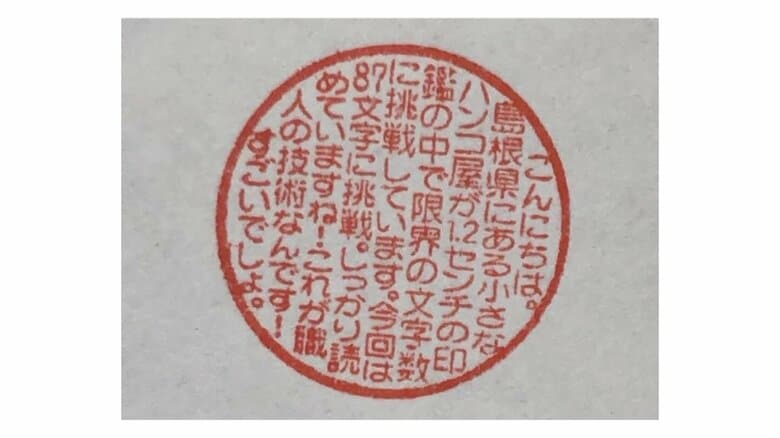 こんにちは。
島根県にある小さな
ハンコ屋が1.2センチの印
鑑の中で限界の文字数
に挑戦しています。今回は
87文字に挑戦。しっかり読
めていますね！これが職
人の技術なんです！
すごいでしょ。